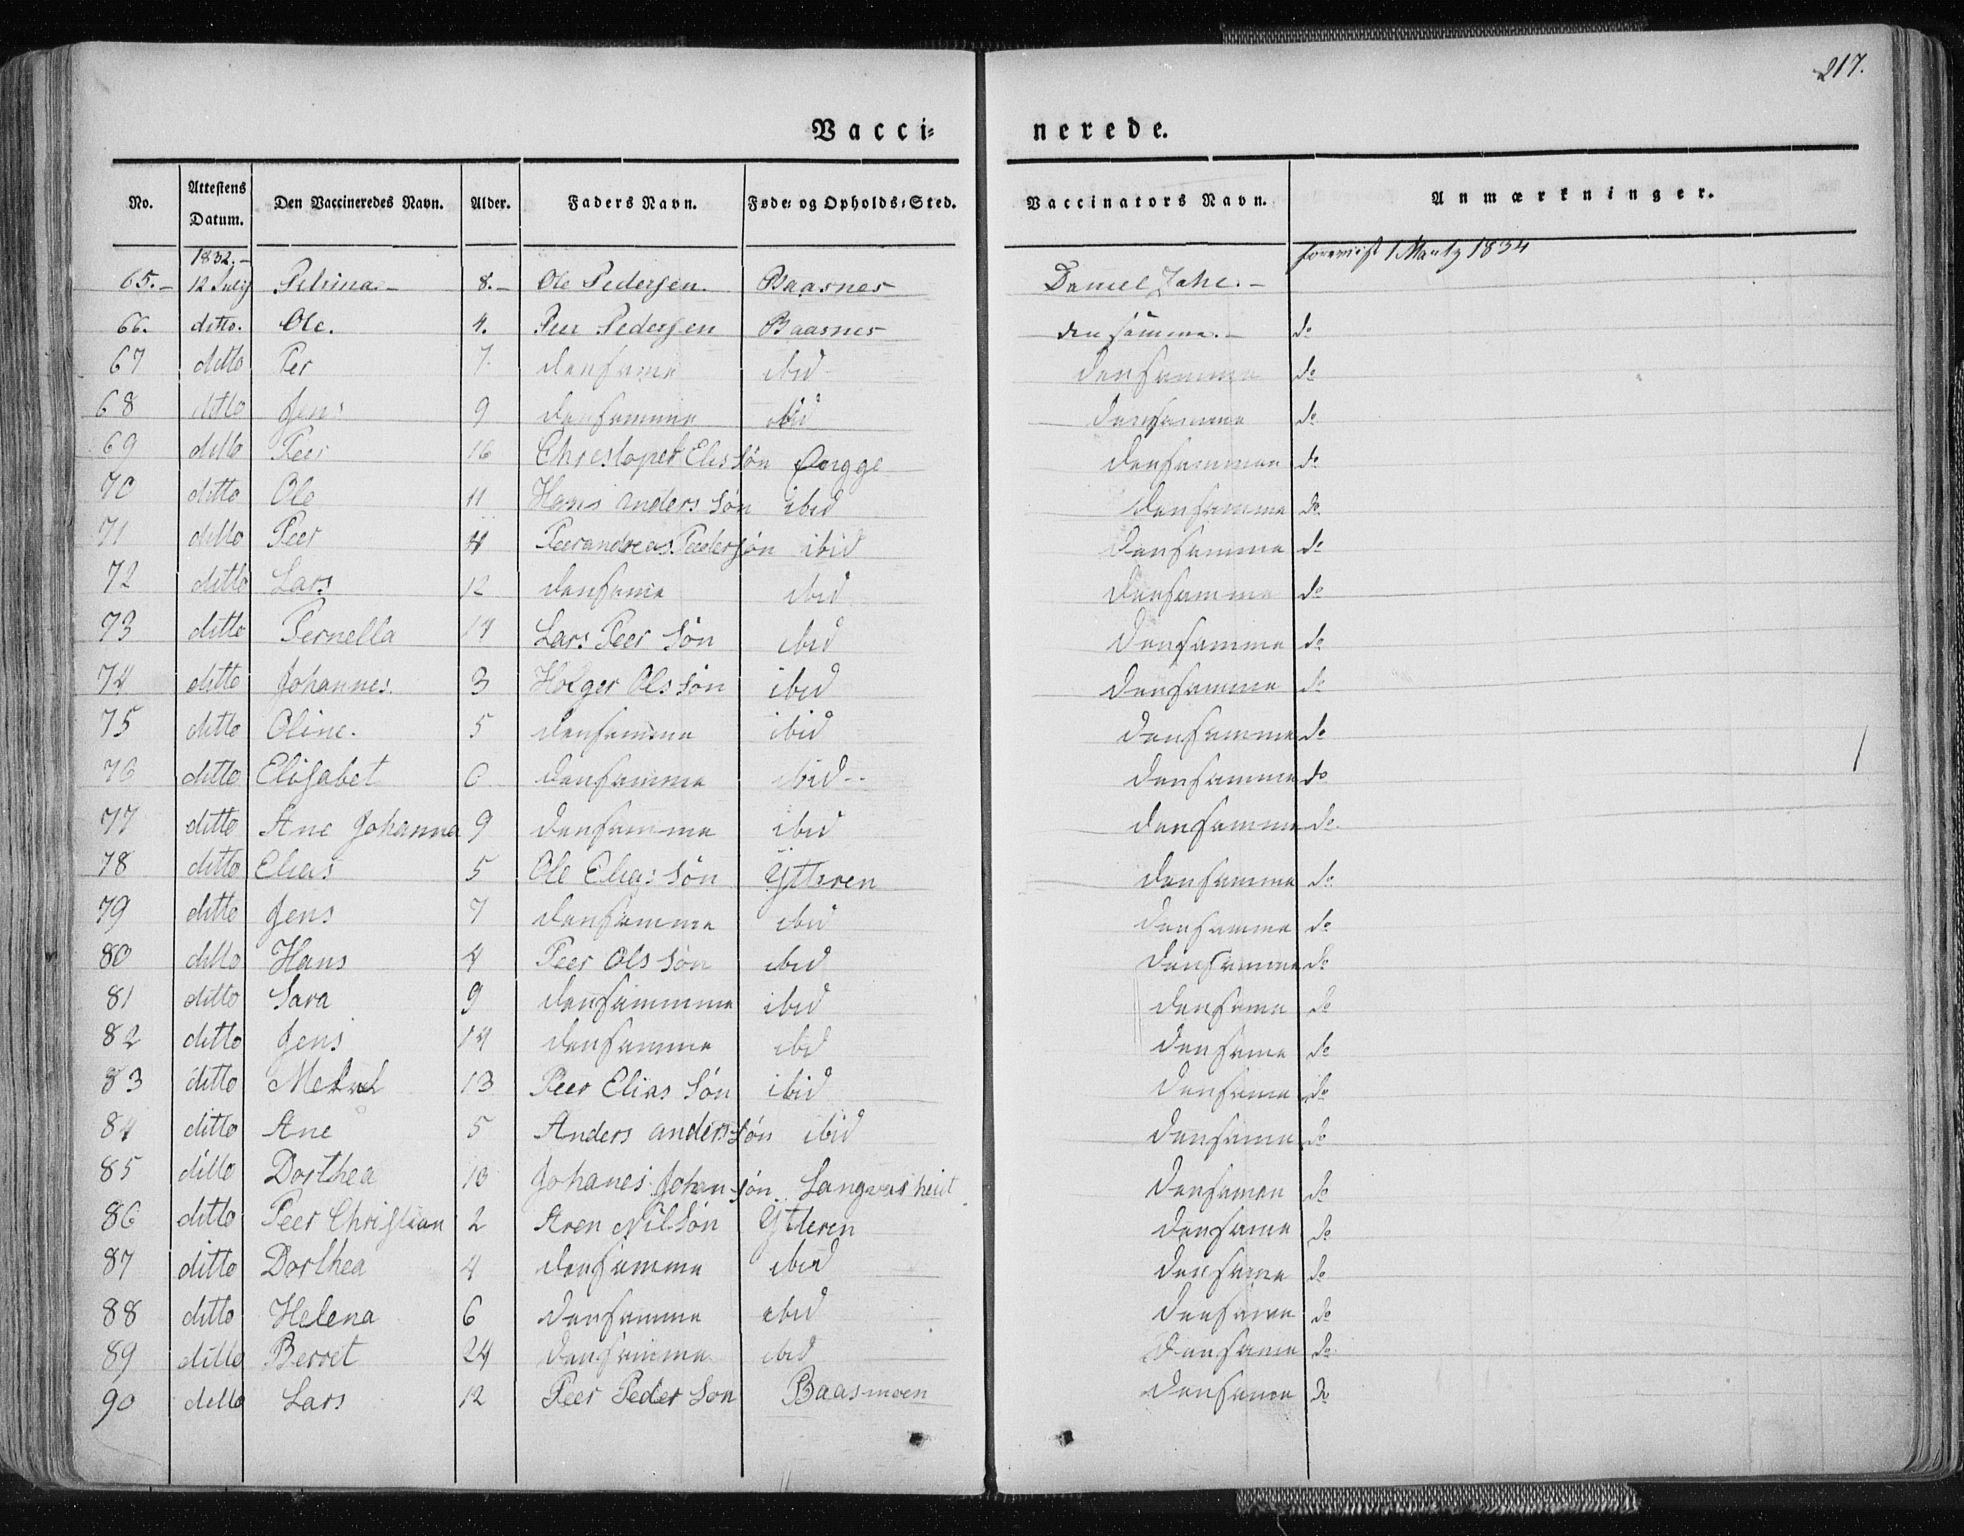 217.
Vacci= nerede.
No. Attestens Datum. Den Vaccineredes Navn. Alder. Faders Navn. Føde= og Opholds=Sted. Vaccinators Navn. Anmærkninger.
1832.- 1834
65.- 12 July Petrina- 8.- Ole Pedersen. Baasnes Daniel -
66. ditto. Ole. 4. Peer Pedersen Baasnes den samme.- do
67 ditto Per 7. densame ibid densamme do
68 ditto Jens 9 densamme ibid densamme do
69 ditto Peer 16 Christopet Elissøn densamme do
70 ditto Ole 11 Hans anderssøn ibid densamme do
71 ditto Peer Peerandreas Pedersøn ibid densamme do
72 ditto Lars 12 densame ibid densamme do
73 ditto Pernella 14 Lars Peer Søn ibid densamme do
74 ditto Johannes. 3 Holger Ols søn ibid densamme do
75 ditto Oline. 5 densamme ibid densamme do
76 ditto Elisabet 0 densamme ibid-- densamme do
77 ditto Ane Johanna 9 densamme ibid densamme do.
78 ditto Elias 5 Ole Elias søn Ytteren densamme do
79 ditto Jens 7 densamme ibid densamme do
80 ditto Hans 4 Peer Ols søn ibid densamme do
81 ditto Sara 9 densammme ibid densame do
82 ditto Jens 14 densamme ibid densame do
83 ditto 13 Peer Elias Søn ibid densame do
84 ditto Ane 5 Anders anderssøn ibid densame do
85 ditto Dorthea 10 Johanes Johansøn. densamme do
86 ditto Peer Christian 2 Aren Nilsøn Ytteren densame do
87 ditto Dorthea 4 densamme ibid densame do
88 ditto Helena 6 densamme ibid densame do
89 ditto Berret 24 densamme ibid densame do
90 ditto Lars 12 Peer Peder Son Baasmoen densame do